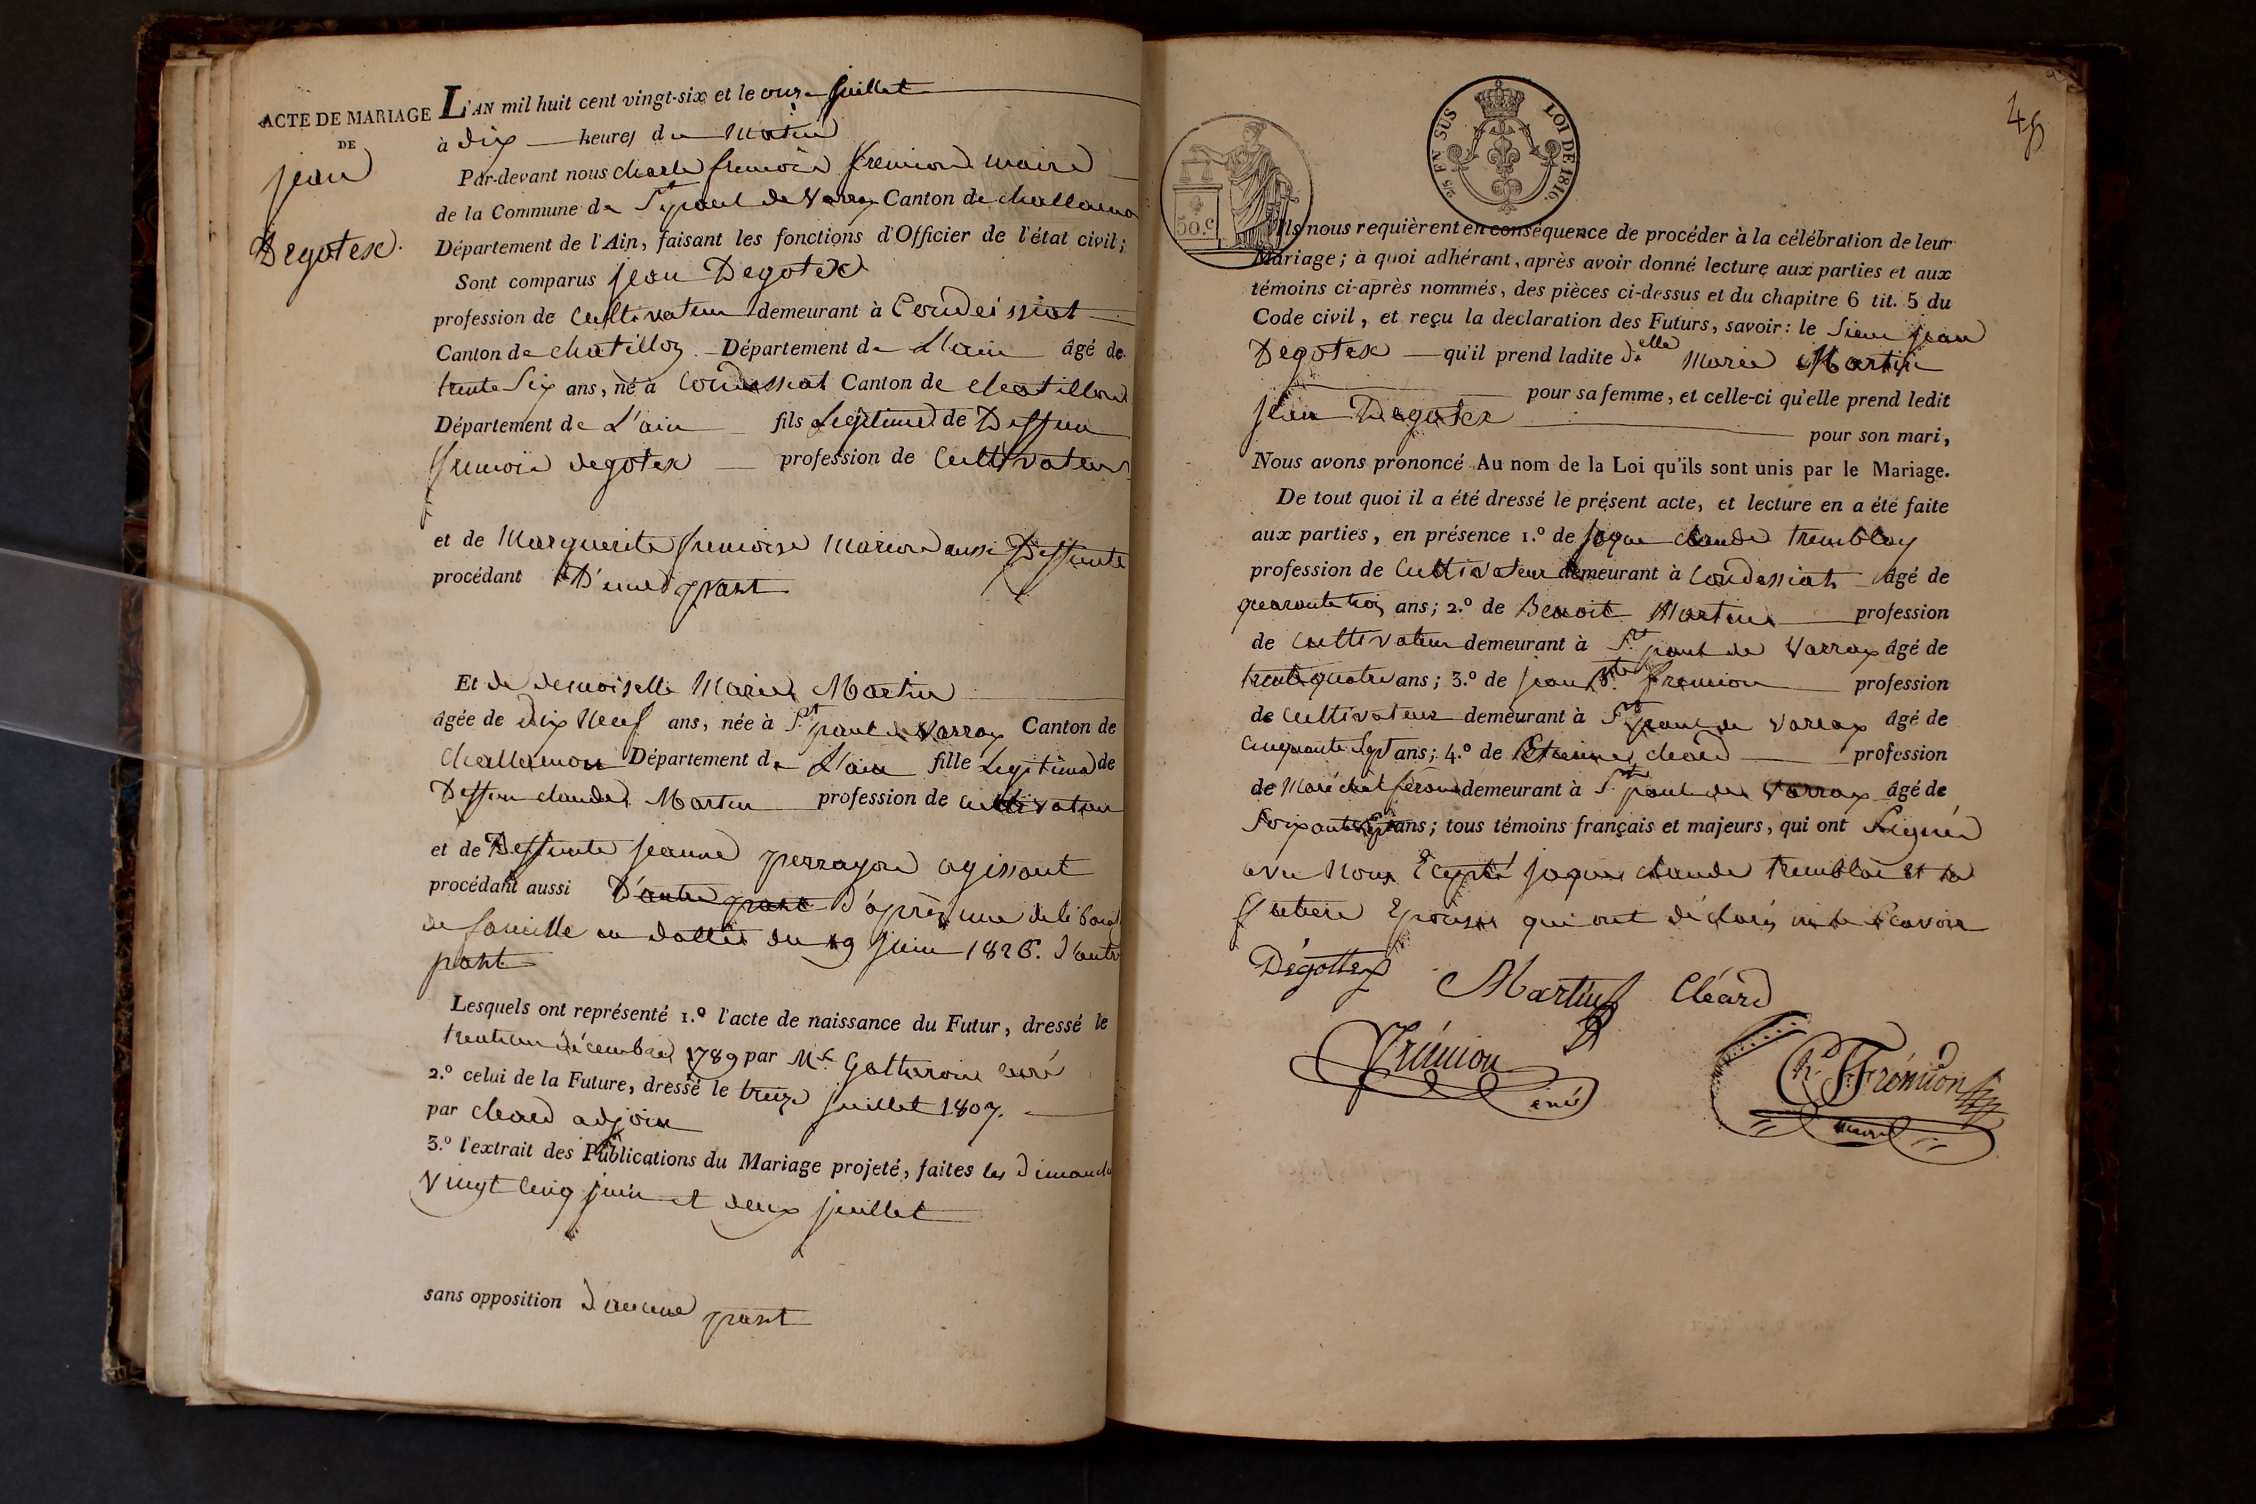 ACTE DE MARIAGE
DE
jean
Degotex.
L'AN mil huit cent vingt-six et le onze juillet
à dix heures du Matin
Par-devant nous charle francois fremion maire
de la Commune de St paul de Varax Canton de challamon
Département de l'Ain, faisant les fonctions d'Officier de l'état civil;
Sont comparus jean Degotex
profession de Cultivateur demeurant à Condeissiat
Canton de chatillon Département de L'ain âgé de
trente Six ans, né à Condessiat Canton de chatillon
Département de L'ain fils Legitime de Deffun
francois degotex profession de Cultivateur
et de Marguerite francoise Marion aussi Deffunte
procédant D'une part
Et de demoiselle Marie Martin
âgée de dix Neuf ans, née à St paul de Varrax Canton de
Challamon Département de L'ain fille Legitime de
Deffun claude Martin profession de cultivateur
et de Deffunte jeanne perrayon agissant
procédant aussi D'autre part d'après une
de famille en datte du 19 juin 1826. d'autre
part
Lesquels ont représenté 1.º l'acte de naissance du Futur, dressé le
trente un décembre 1789 par Mr curé
2.º celui de la Future, dressé le treize juillet 1807.
par cleard adjoin
3.º l'extrait des Publications du Mariage projeté, faites les dimanche
Vingt Cinq juin et deux juillet
sans opposition d'aucune part
48
2/5 EN SUS
LOI DE 1816.
50.c
Ils nous requièrent en conséquence de procéder à la célébration de leur
Mariage; à quoi adhérant, après avoir donné lecture aux parties et aux
témoins ci-après nommés, des pièces ci-dessus et du chapitre 6 tit. 5 du
Code civil, et reçu la declaration des Futurs, savoir: le Sieur jean
Degotex qu'il prend ladite delle Marie Martin
pour sa femme, et celle-ci qu'elle prend ledit
jean Degotex
pour son mari,
Nous avons prononcé Au nom de la Loi qu'ils sont unis par le Mariage.
De tout quoi il a été dressé le présent acte, et lecture en a été faite
aux parties, en présence 1.º de jaque claude tremblay
profession de Cultivateur demeurant à Condessiat âgé de
quarante trois ans; 2.º de Benoit Martin profession
de Cultivateur demeurant à St paul de Varrax âgé de
trente quatre ans; 3.º de jean Bte fremion profession
de Cultivateur demeurant à St paul de Varrax âgé de
Cinquante Sept ans; 4.º de Etienne cleard profession
de Maréchal feron demeurant à St paul de Varrax âgé de
Soixante ans; tous témoins français et majeurs, qui ont Signés
avec Nous Excepté jaques claude et la
épouse qui ont déclarés ne le Scavoir
Dégottex
Martin
Cléard
Frémion
ainé
Ch. F. Frémion
maire